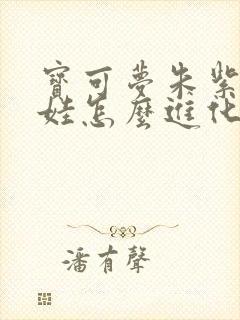 寶可夢朱紫
娃怎麼進化
潘有聲